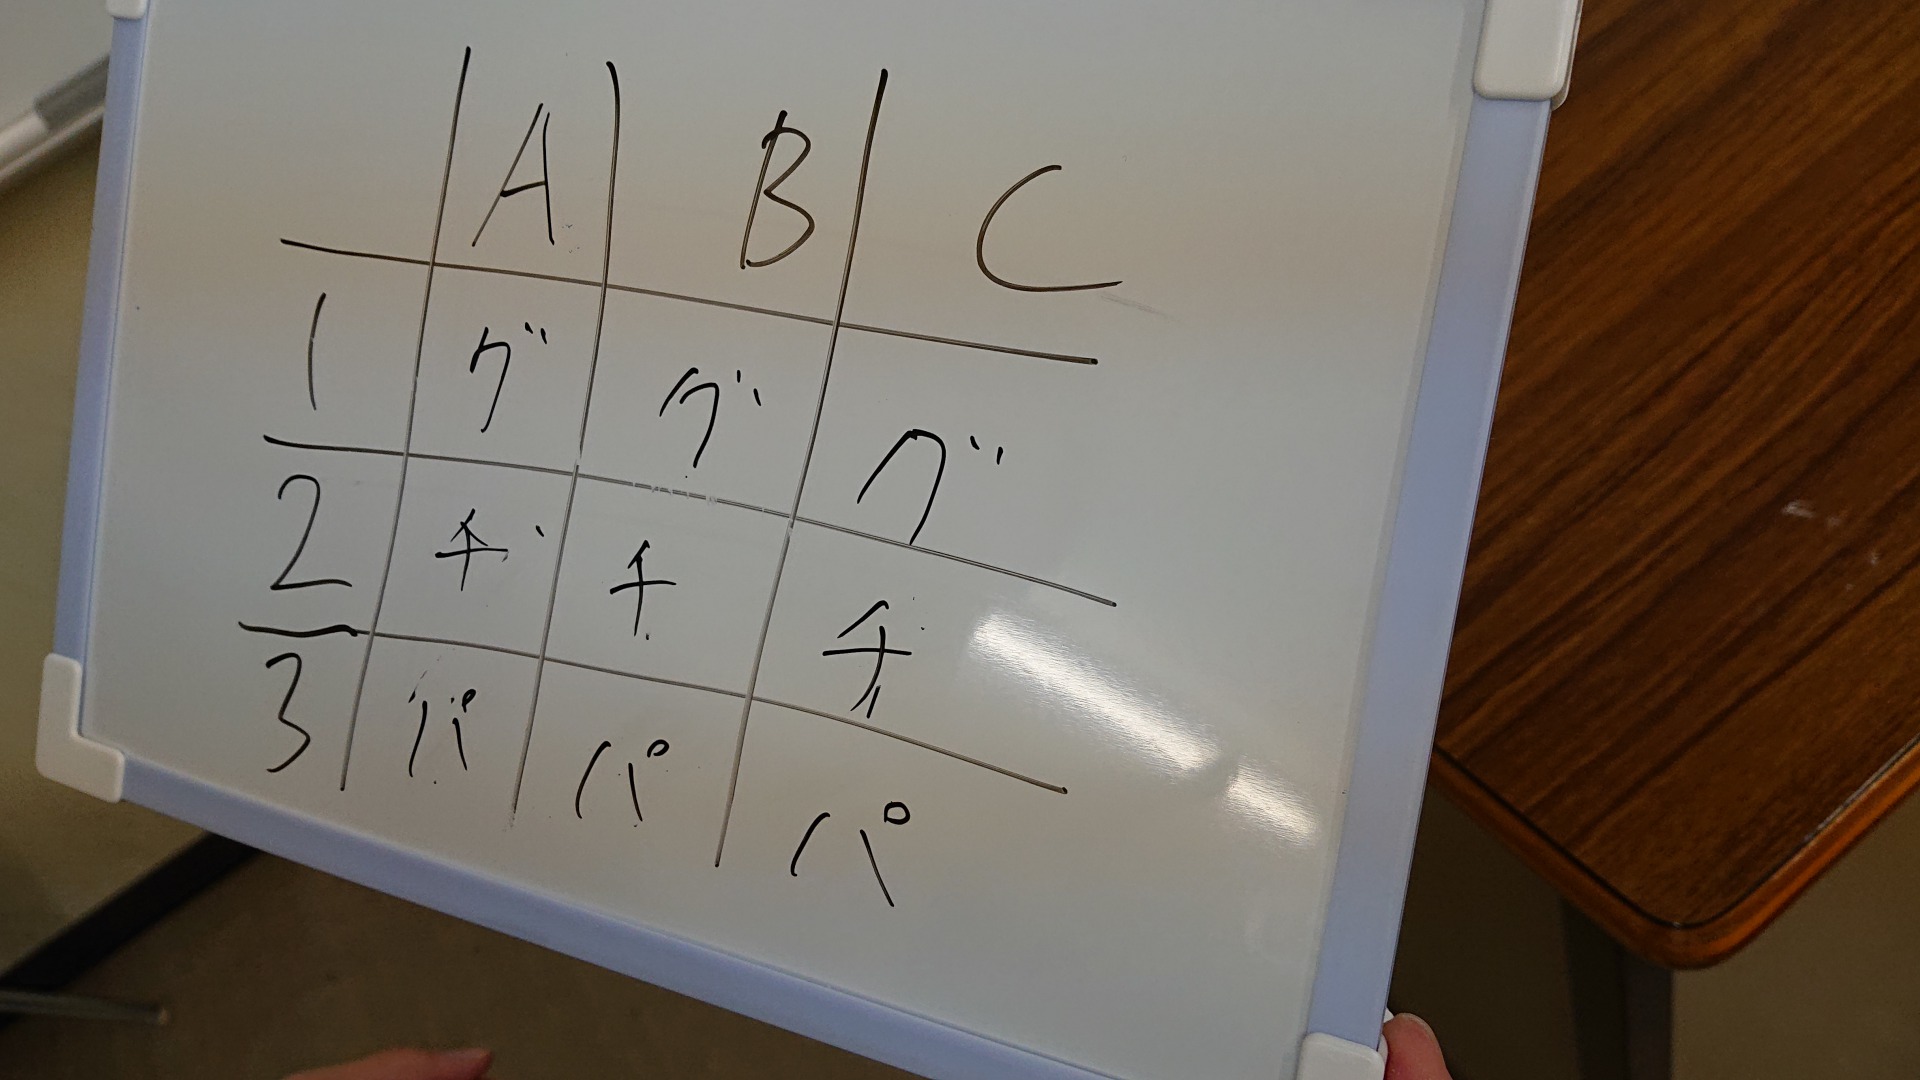 A B C
1 グ グ グ
2 チ チ チ
3 パ パ パ